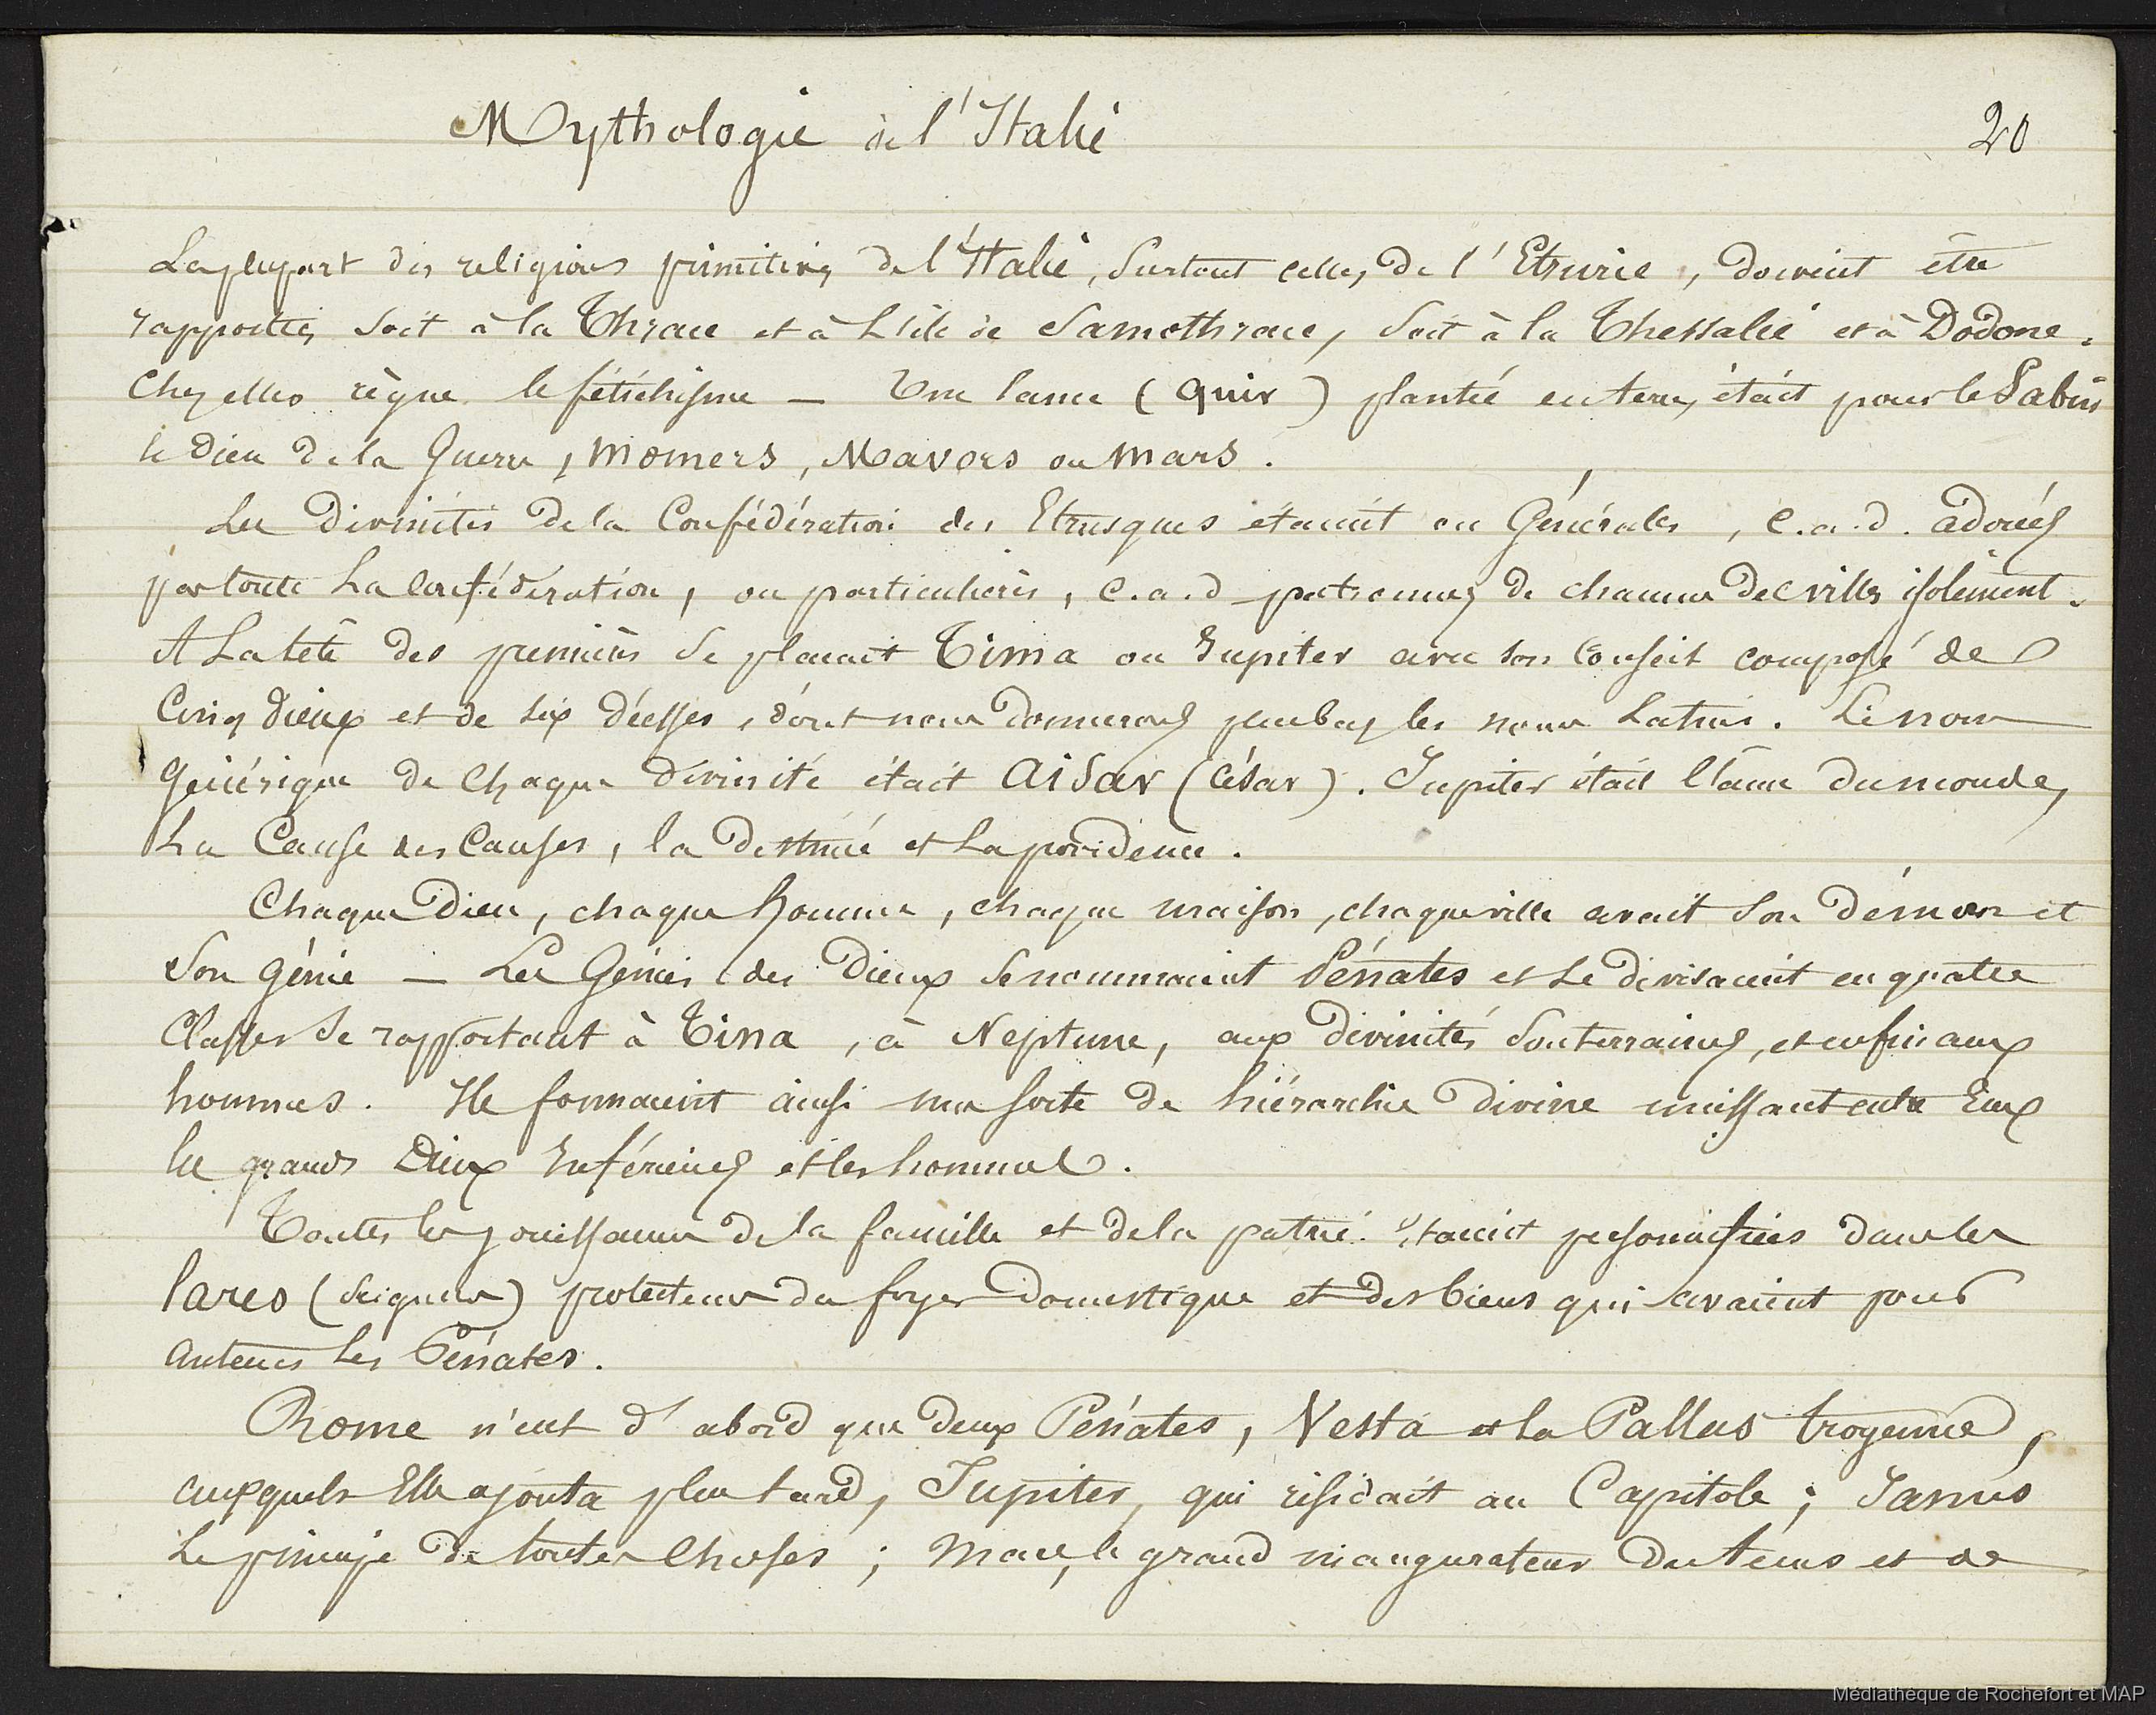 Mythologie de l'Italie
20
La plupart des religions primitives de l'Italie, surtout celles de l'Etrurie, doivent être
rapportées soit à la Thrace et à L'île de Samothrace, soit à la Thessalie et à Dodone.
Chez elles règne le fétichisme — Une lance (quir) plantée en terre, était pour le Sabin
le Dieu de la Guerre, Momers, Mavors ou Mars.
Les Divinités de la Confédération des Etrusques étaient ou Générales, c.a.d. adorées
par toute La Confédération, ou particulières, c.a.d patronnes de chacune des villes isolément.
A La tête des premières se plaçait Tinia ou Jupiter avec son Conseil composé de
Cinq dieux et de six Déesses, dont nous donnerons plus bas les noms Latins. Le nom
générique de Chaque divinité était Aisar (César). Jupiter était l'âme du monde,
La Cause des Causes, la Destinée et La providence.
Chaque Dieu, chaque homme, chaque maison, chaque ville avait son Démon et
son génie — Les Génies des Dieux se nommaient Pénates et se divisaient en quatre
Classes se rapportant à Tina, à Neptune, aux Divinités Souterraines, et enfin aux
hommes. Ils formaient ainsi une sorte de hiérarchie Divine unissant entre Eux
les grands Dieux Inférieurs et les hommes.
Toutes les jouissances de la famille et de la patrie étaient personnifiées dans les
lares (Seigneurs) protecteurs du foyer Domestique et des biens qui avaient pour
auteurs les Pénates.
Rome n'eut d'abord que deux Pénates, Vesta et la Pallas troyenne,
auxquels Elle ajouta plus tard, Jupiter, qui résidait au Capitole; Janus
Le principe de toutes Choses; Mars, le grand inaugurateur du tems et de
Médiathèque de Rochefort et MAP